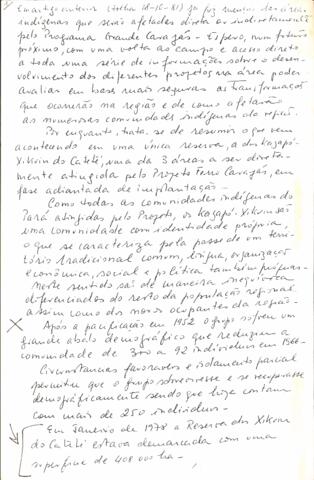 Em artigo anterior (Folha 18-10-81) já fiz menção das áreas
indígenas que serão afetadas direta ou indiretamente
pelo Programa Grande Carajás - Espero, num futuro
próximo, com uma volta ao campo e acesso direto
a toda uma série de informações sobre o desen-
volvimento dos diferentes projetos na área poder
avaliar em base mais segura as transformações
que ocorrerão na região e de como afetarão
as numerosas comunidades indígenas da região.
Por enquanto, trata-se de resumir o que vem
acontecendo em uma única reserva, a dos Kayapó-
Xikrin do Cateté, uma da 3 áreas a ser direta-
mente atingida pelo Projeto Ferro Carajás, em
fase adiantada de implantação -
Como todas as comunidades indígenas do
Pará atingidas pelo Projeto, os Kayapó-Xikrin são
uma comunidade com identidade própria,
o que se caracteriza pela posse de um terri-
tório tradicional comum, língua, organização
econômica, social e política também próprias -
Neste sentido são de maneira inequívoca
diferenciados do resto da população regional
assim como dos novos ocupantes da região -
Após a pacificação em 1952 o grupo sofreu um
grande abalo demográfico que reduziu a
comunidade de 300 a 92 indivíduos em 1966 -
Circunstâncias favoráveis e isolamento parcial
permitiu que o grupo sobrevivesse e se recuperasse
demograficamente sendo que hoje contam
com mais de 250 indivíduos -
Em Janeiro de 1978 a Reserva dos Xikrin
do Cateté estava demarcada com uma
superfície de 408 000 ha -